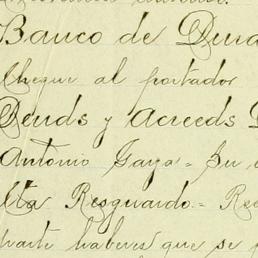 Banco de Dura
Cheque al portador
Deuds y Acreeds D
Antonio Garza = Su
lta Resguardo = Res
parte haberes que se p